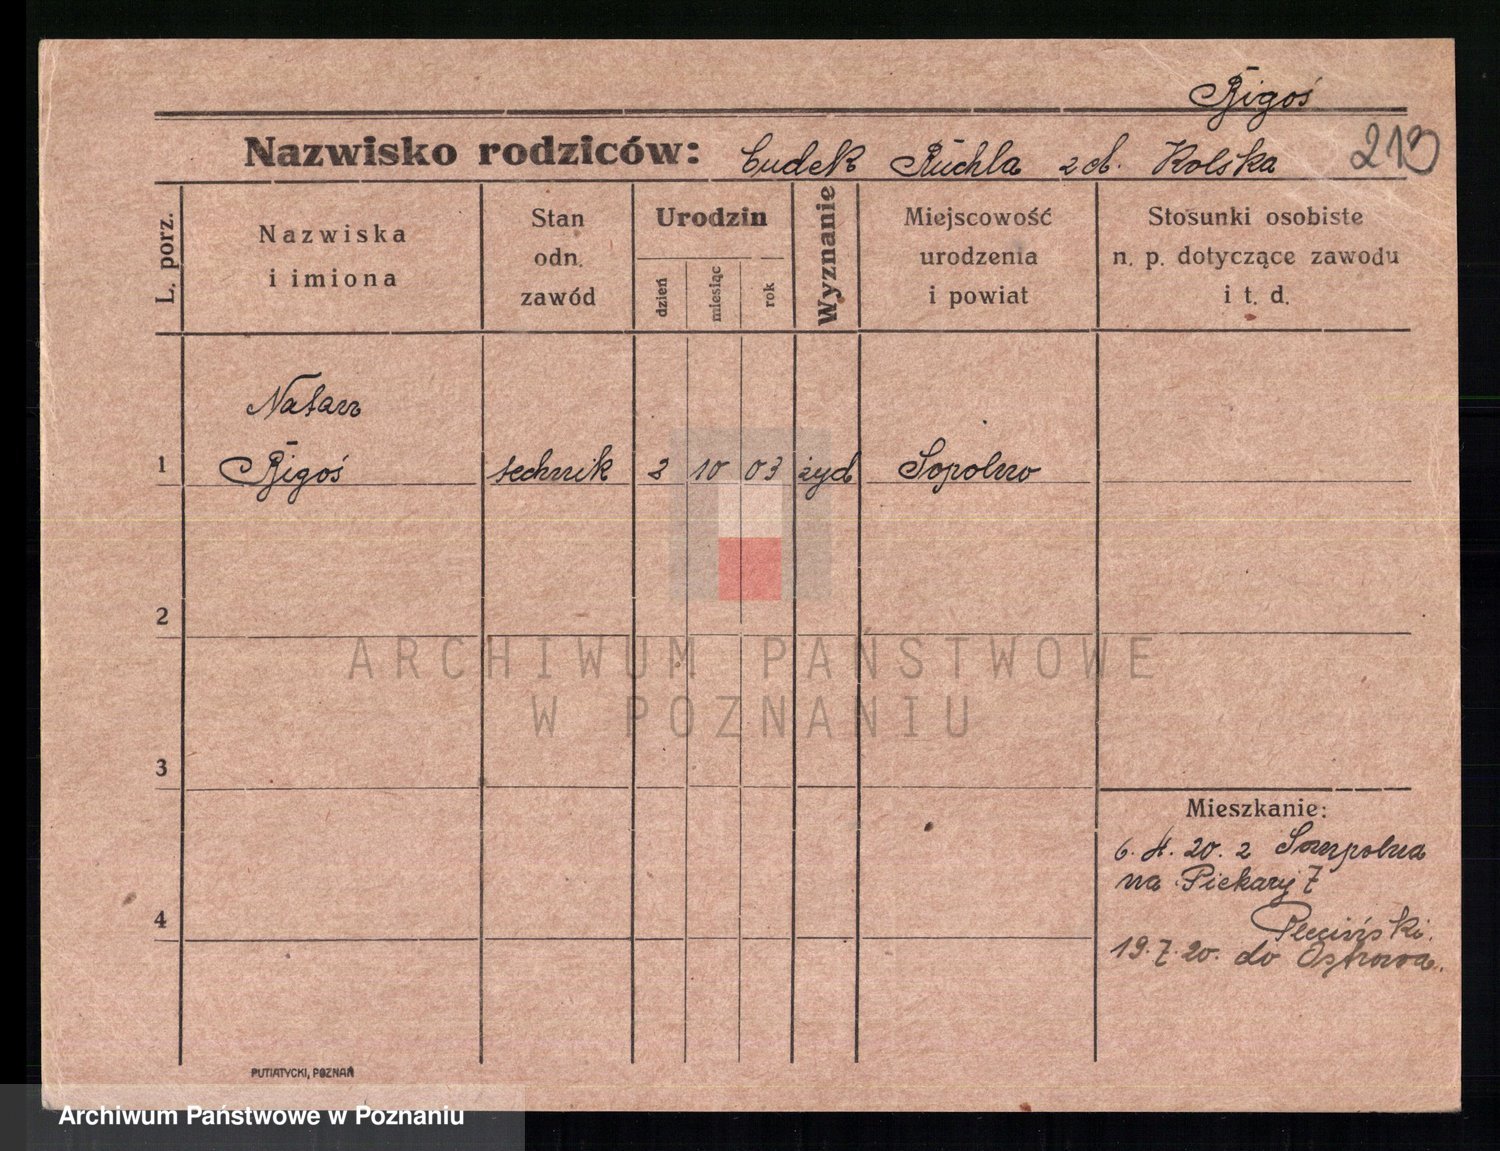 Bigoś
Nazwisko rodziców: Cudek Ruchla z d. Kolska 213
L. porz.
Nazwiska
i imiona
Stan
odn.
zawód
Urodzin
dzień
miesiąc
rok
Wyznanie
Miejscowość
urodzenia
i powiat
Stosunki osobiste
n. p. dotyczące zawodu
i t. d.
Natan
1 Bigoś technik 2 10 03 żyd Sopolno
2
ARCHIWUM PAŃSTWOWE
W POZNANIU
3
Mieszkanie:
6. 4. 20. z Sompolna
na Piekary 7
4
19. 7. 20. do Ostrowa.
PUTIATYCKI, POZNAŃ
Archiwum Państwowe w Poznaniu